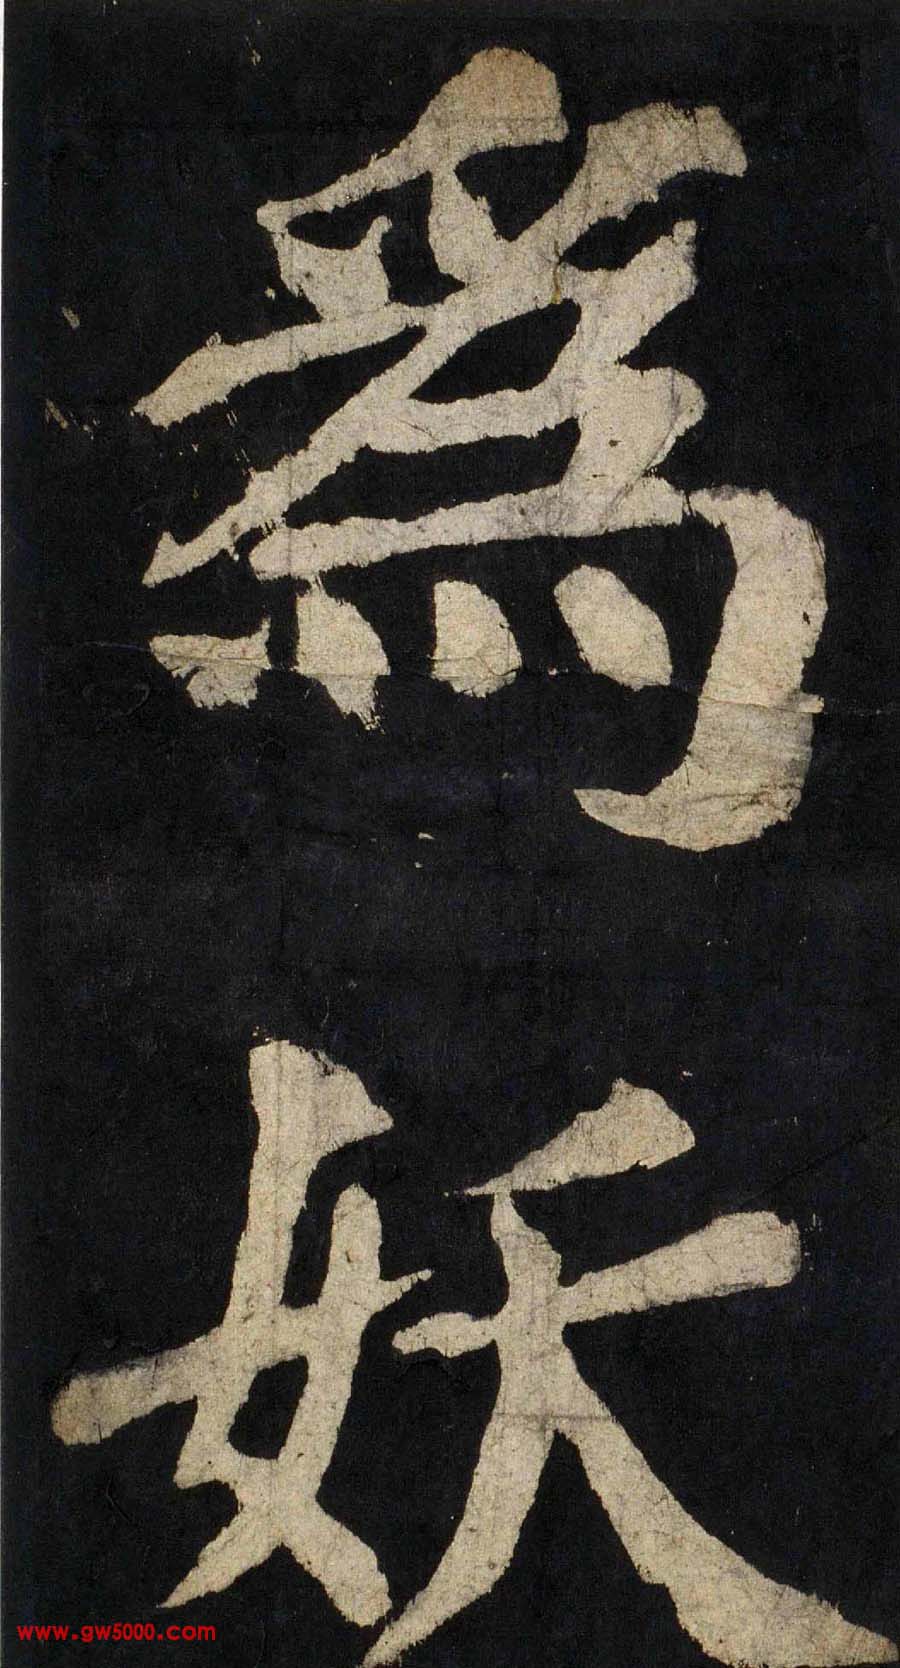 爲
妖
www.gw5000.com